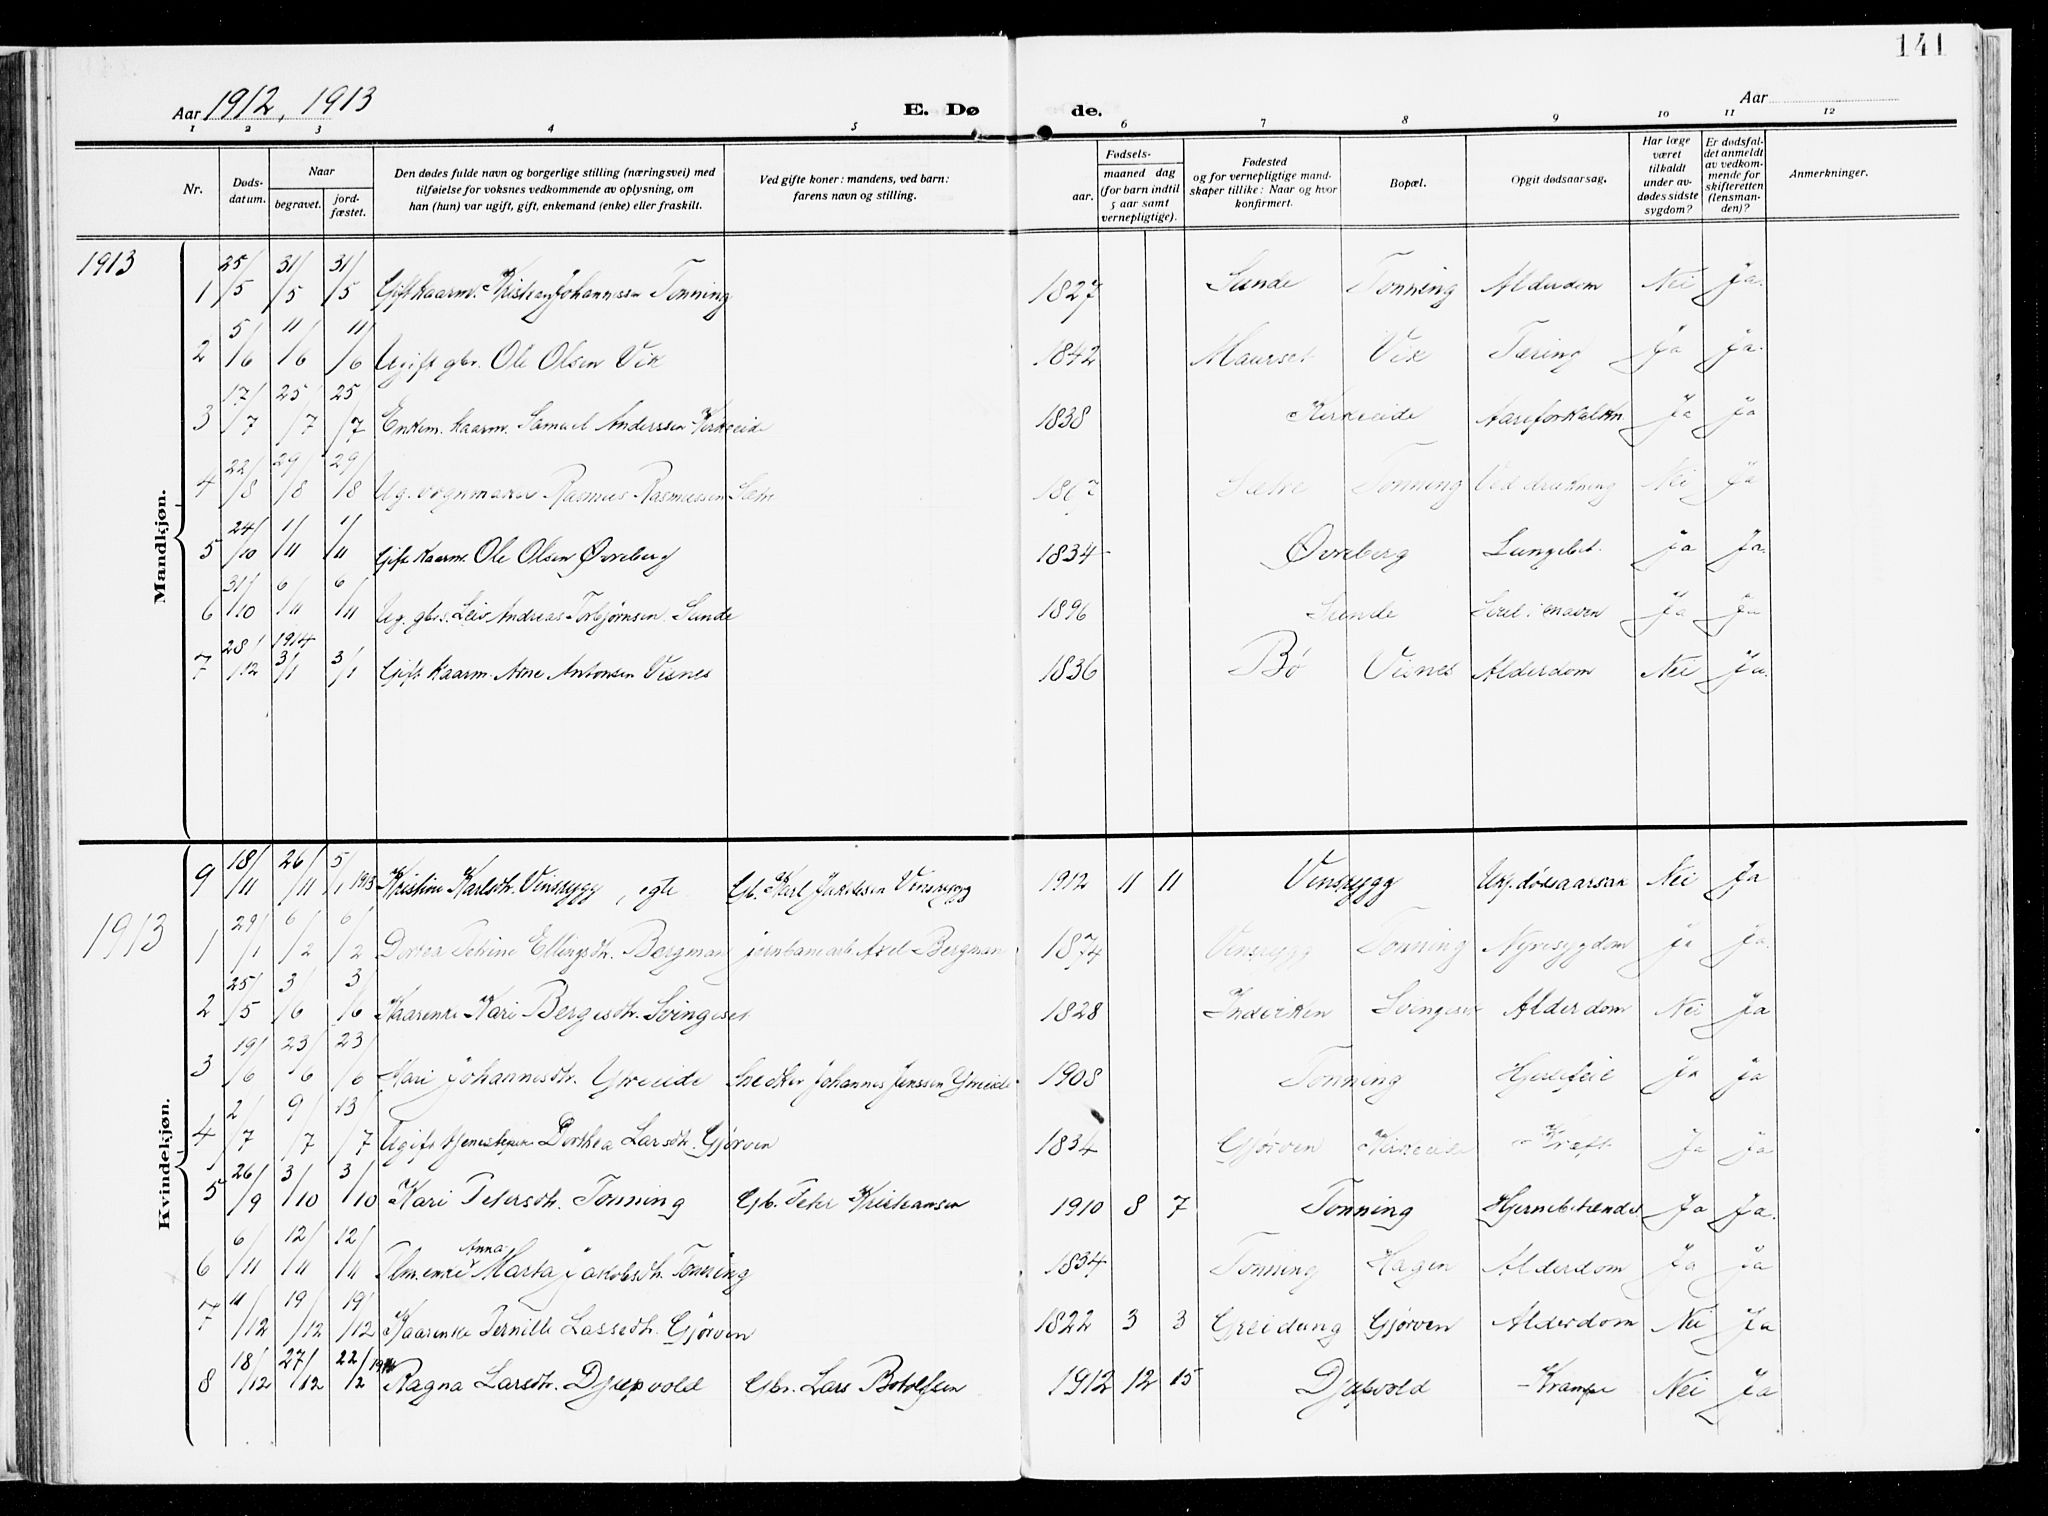 141
Aar 1912, 1913 E. Dø de. Aar
1 2 3 4 5 6 7 8 9 10 11 12
Nr. Døds-datum. Naar begravet. jord-fæstet. Den dødes fulde navn og borgerlige stilling (næringsvei) med tilføielse for voksnes vedkommende av oplysning, om han (hun) var ugift, gift, enkemand (enke) eller fraskilt. Ved gifte koner: mandens, ved barn: farens navn og stilling. Fødsels- aar. maaned dag (for barn indtil 5 aar samt vernepligtige). Fødested og for vernepligtige mandskaper tillike: Naar og hvor konfirmert. Bopæl. Opgit dødsaarsag. Har læge været tilkaldt under avdødes sidste sygdom? Er dødsfaldet anmeldt av vedkommende for skifteretten (lensmanden)? Anmerkninger.
Mandkjøn.
1913
1 25/5 31/5 31/5 Gift kaarm. Kristian Johannessen Tonning 1827 Sunde Tonning Alderdom Nei Ja.
2 5/6 11/6 11/6 Ugift gbr. Ole Olsen Vik 1842 Maurset Vik Tæring Ja Ja.
3 17/7 25/7 25/7 Enkem. kaarm. Samuel Anderssen Kirkeeide 1838 Kirkeeide Aareforkalkn Ja Ja
4 22/8 29/8 29/8 Ug. vognmand Rasmus Rasmussen Tonning Ved drukning Nei Ja
5 24/10 1/11 1/11 Gift Kaarm. Ole Olsen Øvreberg 1834 Øvreberg Lungebet. Ja Ja.
6 31/10 6/11 6/11 Ug. gbrs. Leiv Andreas Torbjørnsen Sunde 1896 Sunde i maven Ja Ja
7 28/12 1914 3/1 3/1 Gift Kaarm. Arne Antonsen Visnes 1836 Bø Visnes Alderdom Nei Ja.
Kvindekjøn.
9 18/11 26/11 5/1 1913 Kristine Karlsdtr. Vinsrygg, egte Gb. Karl Jakobsen Vinsrygg 1912 11 11 Vinsrygg Ukj. dødsaarsak Nei Ja
1913
1 29/1 6/2 6/2 Dortea Petrine Ellingsdtr. Bergman jernbanearb. Axel Bergman 1874 Vinsrygg Tonning Nyresygdom Ja Ja.
2 25/5 3/6 3/6 Kaarenke Kari Bergesdtr. Svingeset 1828 Indviken Svingeset Alderdom Nei Ja
3 19/6 23/6 23/6 Kari Johannesdtr. Yreeide Snedker Johannes Jenssen Yreeide 1908 Tonning Hjertefeil Ja Ja
4 2/7 9/7 13/7 Ugift tjenestepike Dorthea Larsdtr. Gjørven 1834 Gjørven Kirkeeide Kræft Ja Ja
5 26/9 3/10 3/10 Kari Petersdtr. Tonning Gb. Peter Kristiansen 1910 8 7 Tonning Hjernebetændes Ja Ja.
6 6/11 12/11 12/11 Flm. enke Anna Marta Jakobsdtr. Tonning 1834 Tonning Hagen Alderdom Ja Ja
7 11/12 19/12 19/12 Kaarenke Pernille Lassedtr. Gjørven 1822 3 3 Greidung Gjørven Alderdom Nei Ja
8 18/12 27/12 22/2 1914 Ragna Larsdtr. Djupvold Gbr. Lars Botolfsen 1912 12 15 Djupvold Krampe Nei Ja